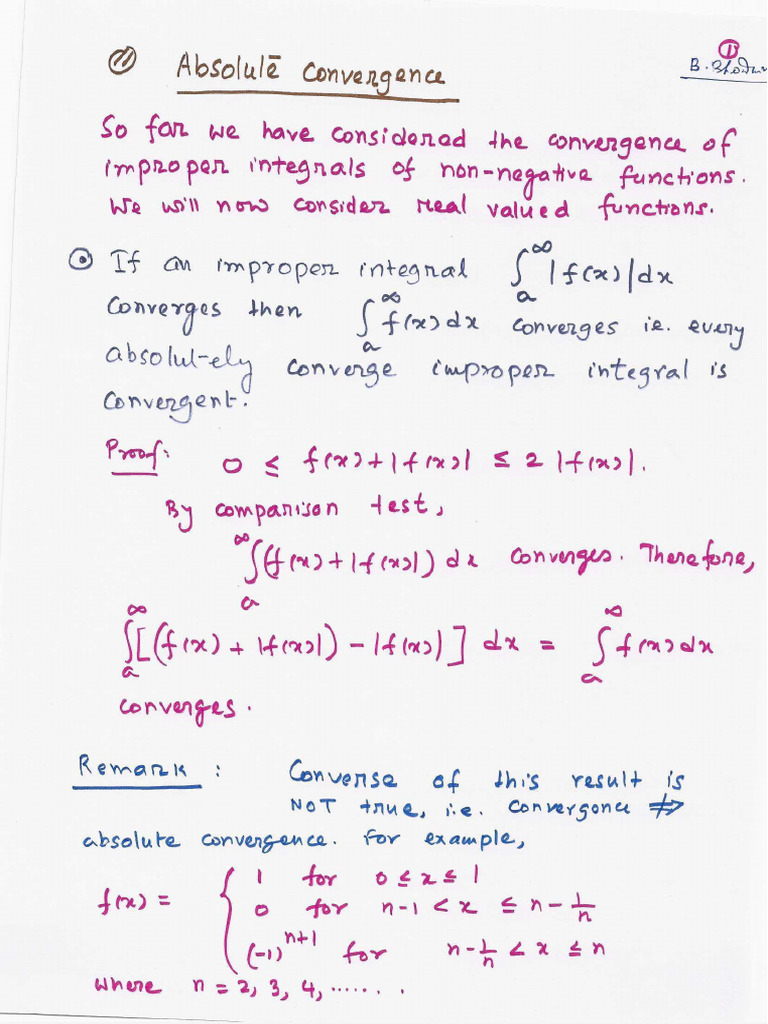 ①
Absolute Convergence
So far we have considered the convergence of
improper integrals of non-negative functions.
We will now consider real valued functions.
⊙ If an improper integral ∫ₐ^∞ |f(x)|dx
converges then ∫ₐ^∞ f(x)dx converges i.e. every
absolut-ely converge improper integral is
convergent.
Proof: 0 ≤ f(x)+|f(x)| ≤ 2|f(x)|.
By comparison test,
∫ₐ^∞ (f(x)+|f(x)|) dx converges. Therefore,
∫ₐ^∞ [(f(x) + |f(x)|) - |f(x)|] dx = ∫ₐ^∞ f(x)dx
converges.
Remark : Converse of this result is
NOT true, i.e. convergence ⇏
absolute convergence. For example,
f(x) = { 1 for 0 ≤ x ≤ 1
0 for n-1 < x ≤ n - 1/n
(-1)^{n+1} for n - 1/n < x ≤ n
where n = 2, 3, 4, .......